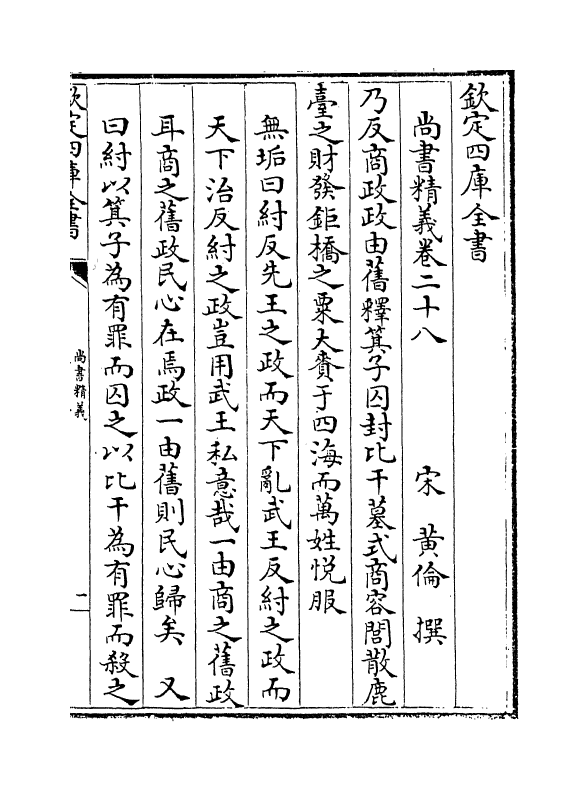 欽定四庫全書
尚書精義卷二十八
宋 黄倫 撰
乃反商政政由舊釋箕子囚封比干墓式商容閭散鹿
臺之財發鉅橋之粟大賚于四海而萬姓悦服
無垢曰紂反先王之政而天下亂武王反紂之政而
天下治反紂之政豈用武王私意哉一由商之舊政
耳商之舊政民心在焉政一由舊則民心歸矣 又
曰紂以箕子為有罪而囚之以比干為有罪而殺之
欽定四庫全書
尚書精義